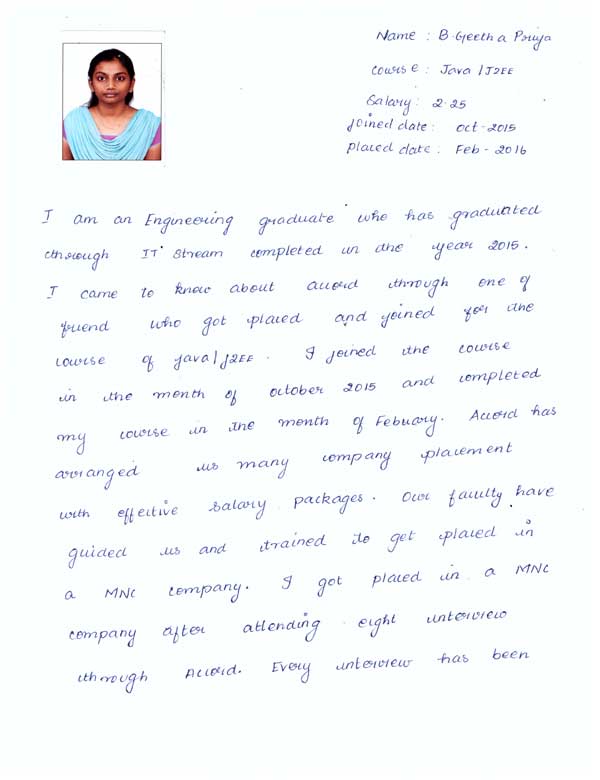 Name : B. Geetha Priya
Course : Java / J2EE
Salary : 2.25
Joined date : Oct - 2015
Placed date : Feb - 2016
I am an Engineering graduate who has graduated
through IT stream completed in the year 2015.
I came to know about accord through one of
friend who got placed and joined for the
course of java / J2EE. I joined the course
in the month of october 2015 and completed
my course in the month of Febuary. Accord has
arranged us many company placement
with effective salary packages. Our faculty have
guided us and trained to get placed in
a MNC company. I got placed in a MNC
company after attending eight interview
through Accord. Every interview has been